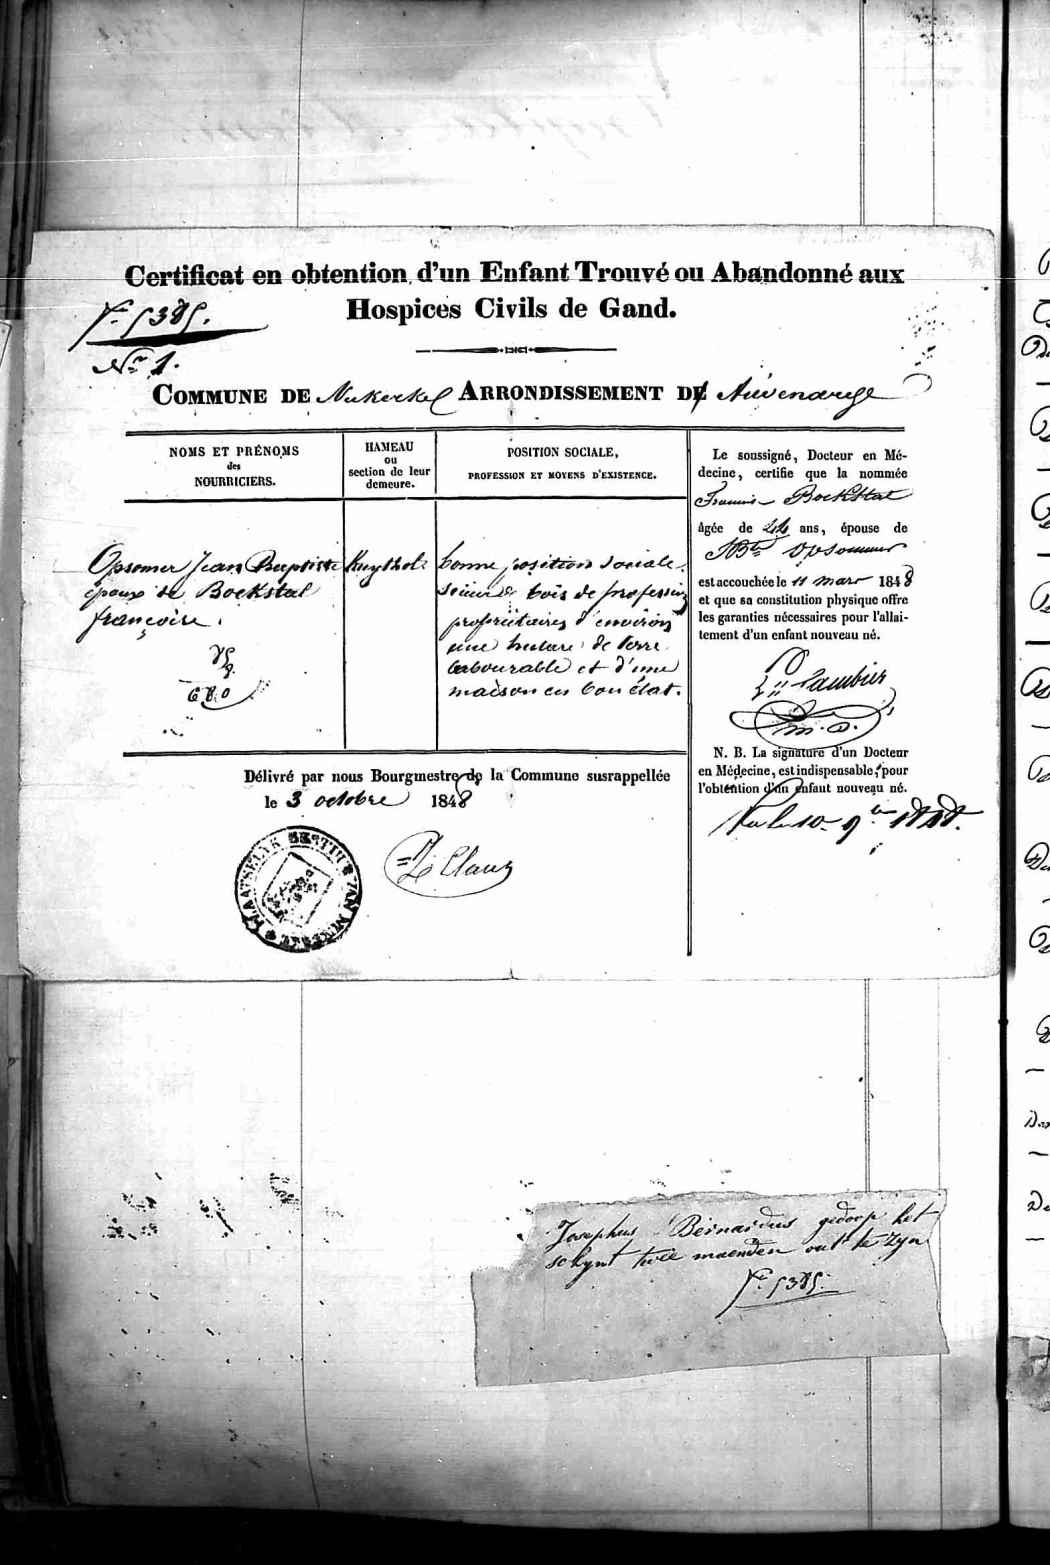 Certificat en obtention d'un Enfant Trouvé ou Abandonné aux
Hospices Civils de Gand.
Fo 5385.
No 1.
COMMUNE DE Nukerke ARRONDISSEMENT D' Audenarde
NOMS ET PRÉNOMS
des
NOURRICIERS.
HAMEAU
ou
section de leur
demeure.
POSITION SOCIALE,
PROFESSION ET MOYENS D'EXISTENCE.
Opsomer Jean Baptiste
époux de Bockstal
françoise.
680
bonne position sociale.
scieur de bois de profession
propriétaires d'environ
une hectare de terre
labourable et d'une
maison en bon état.
Le soussigné, Docteur en Mé-
decine, certifie que la nommée
Bockstal
âgée de 44 ans, épouse de
J Bte Opsommer
est accouchée le 11 mars 1848
et que sa constitution physique offre
les garanties nécessaires pour l'allai-
tement d'un enfant nouveau né.
m. d.
N. B. La signature d'un Docteur
en Médecine, est indispensable, pour
l'obtention d'un enfant nouveau né.
Délivré par nous Bourgmestre de la Commune susrappellée
le 3 octobre 1848
PLAATSELYK BESTIUR VAN NUKERKE
Josephus Bernardus gedoop het
schynt twee maenden out te zyn
Fo 5385.